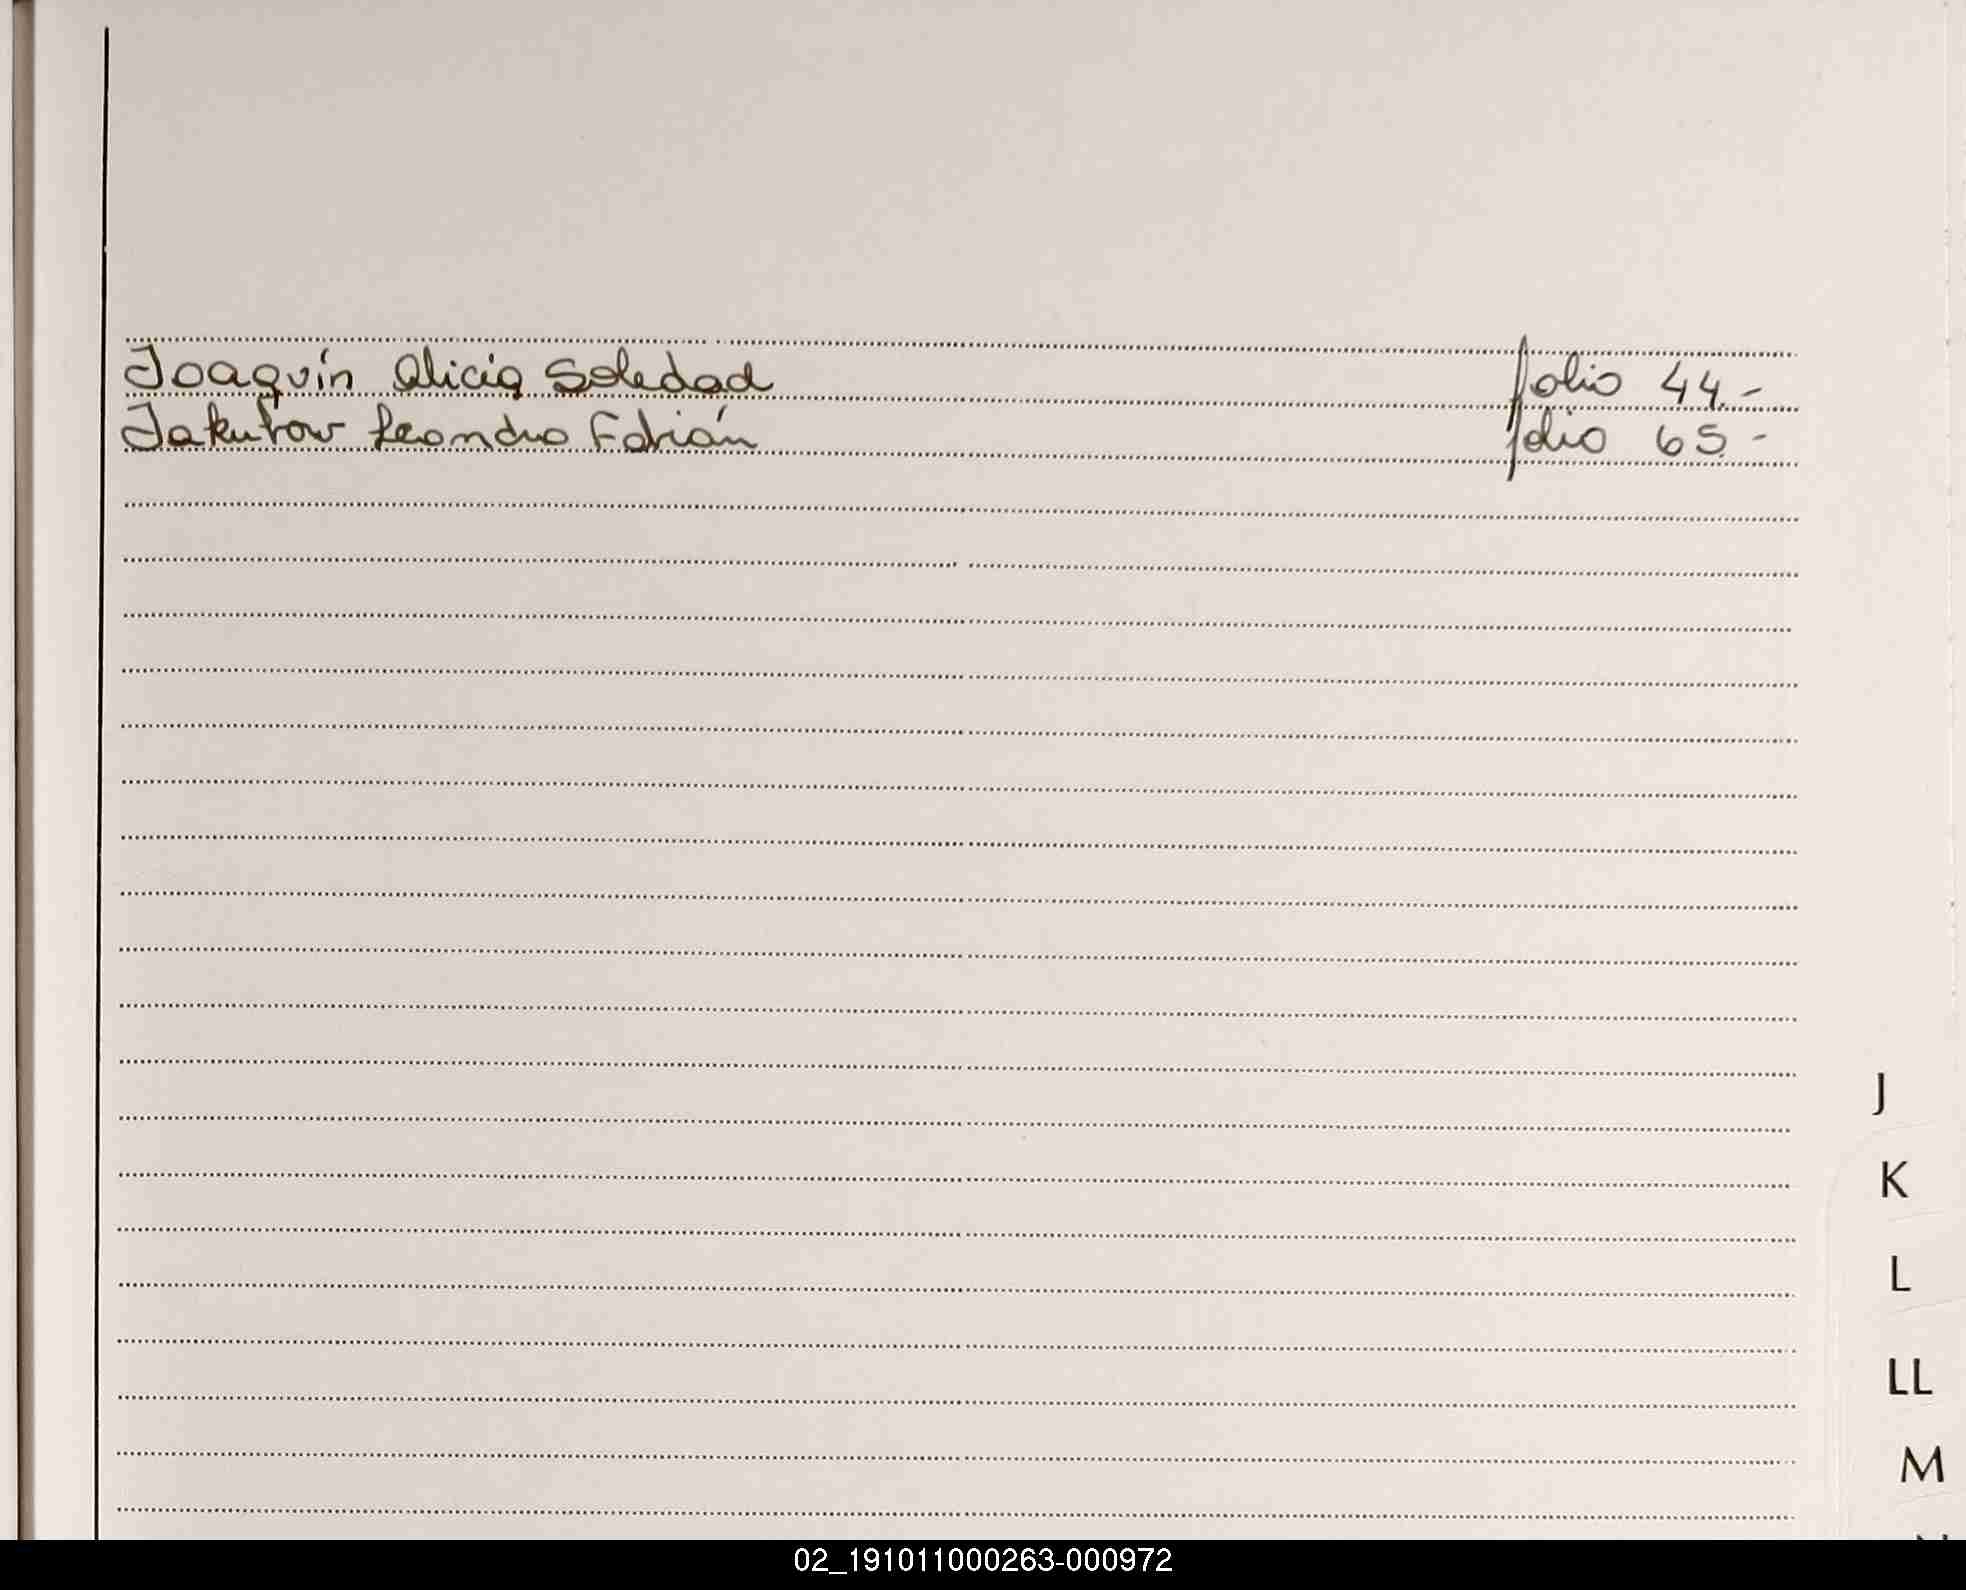 Joaquín Alicia Soledad folio 44.-
Jakubow Leandro Fabián folio 65.-
J
K
L
LL
M
02_191011000263-000972